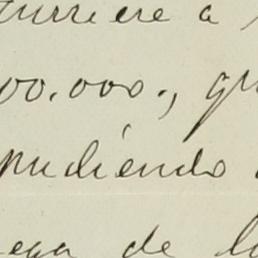 curriere a
00.000., qu
pudiendo
ega de lo